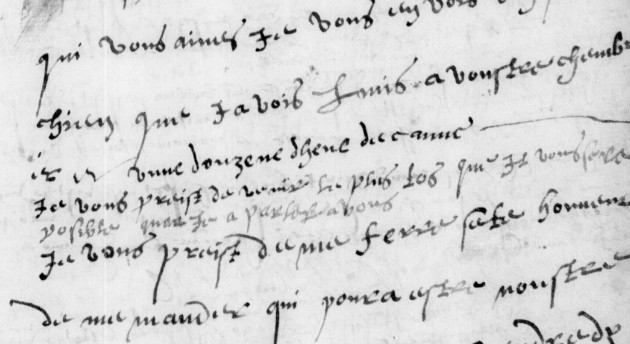 qui vous aimes Je vous en vois
chien que Javois Lmis a voustre chembr
et en vnne douzene dheue de canne
Je vous preist de venir le plus tos que Je vous
posible quar Je a parler a vous
Je vous preist de me ferre sete honneur
de me mander qui poura estre noustre